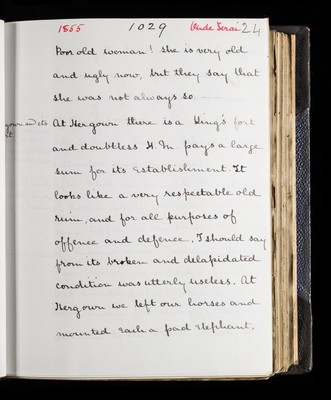 1855 1029 Oude Terai 24
Poor old woman! she is very old
and ugly now, but they say that
she was not always so.
At Hergown there is a King's fort
and doubtless H.M. pays a large
sum for its Establishment It
looks like a very respectable old
ruin, and for all purposes of
offence and defence, I should say
from its broken and delapidated
condition was utterly useless. At
Hergown we left our horses and
mounted each a pad Elephant.